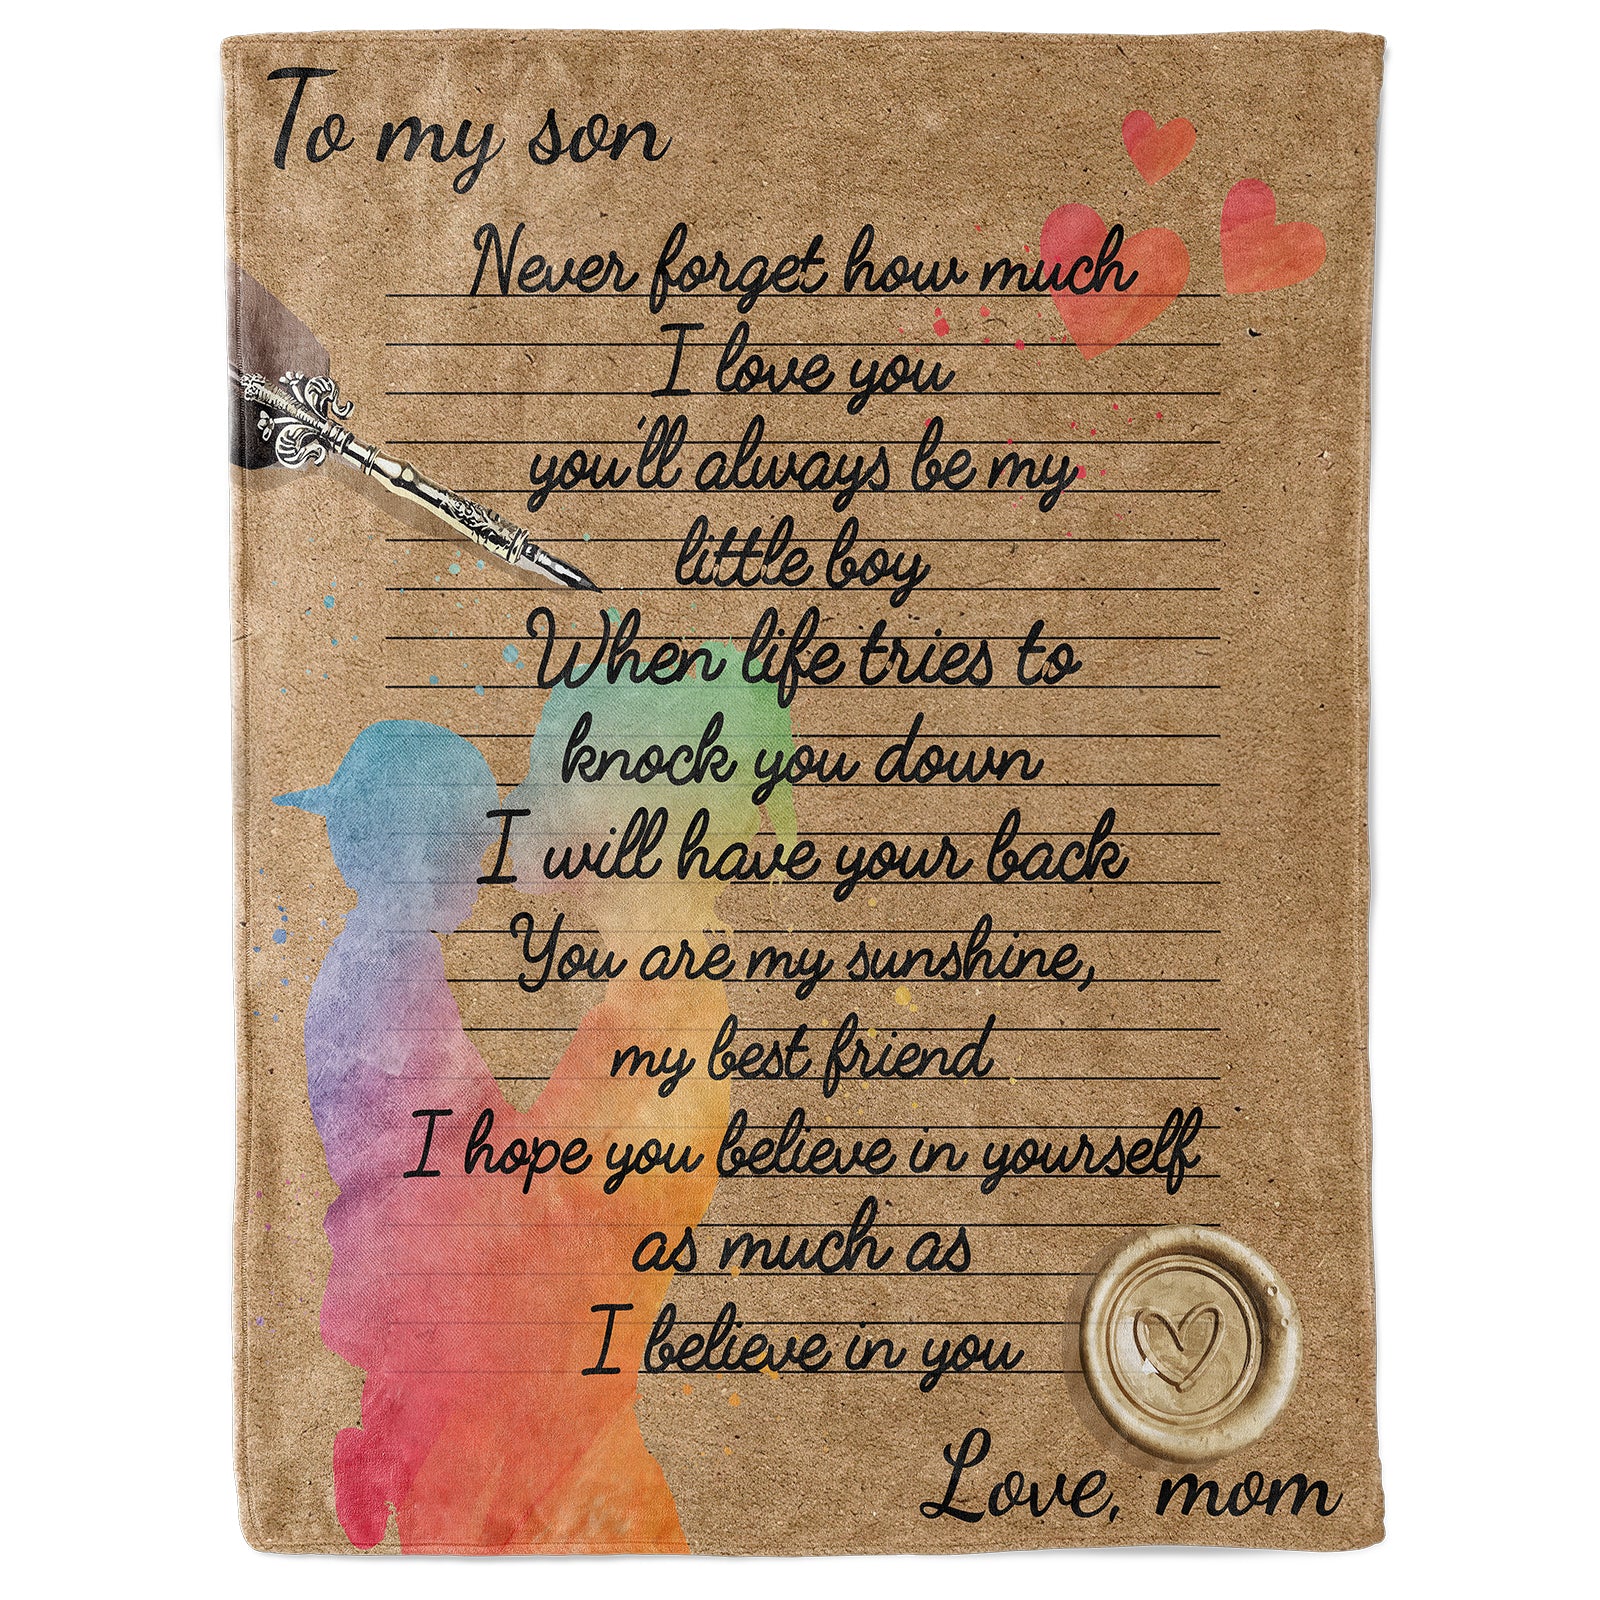 To my son
Never forget how much
I love you
you'll always be my
little boy
When life tries to
knock you down
I will have your back
You are my sunshine,
my best friend
I hope you believe in yourself
as much as
I believe in you
Love, mom